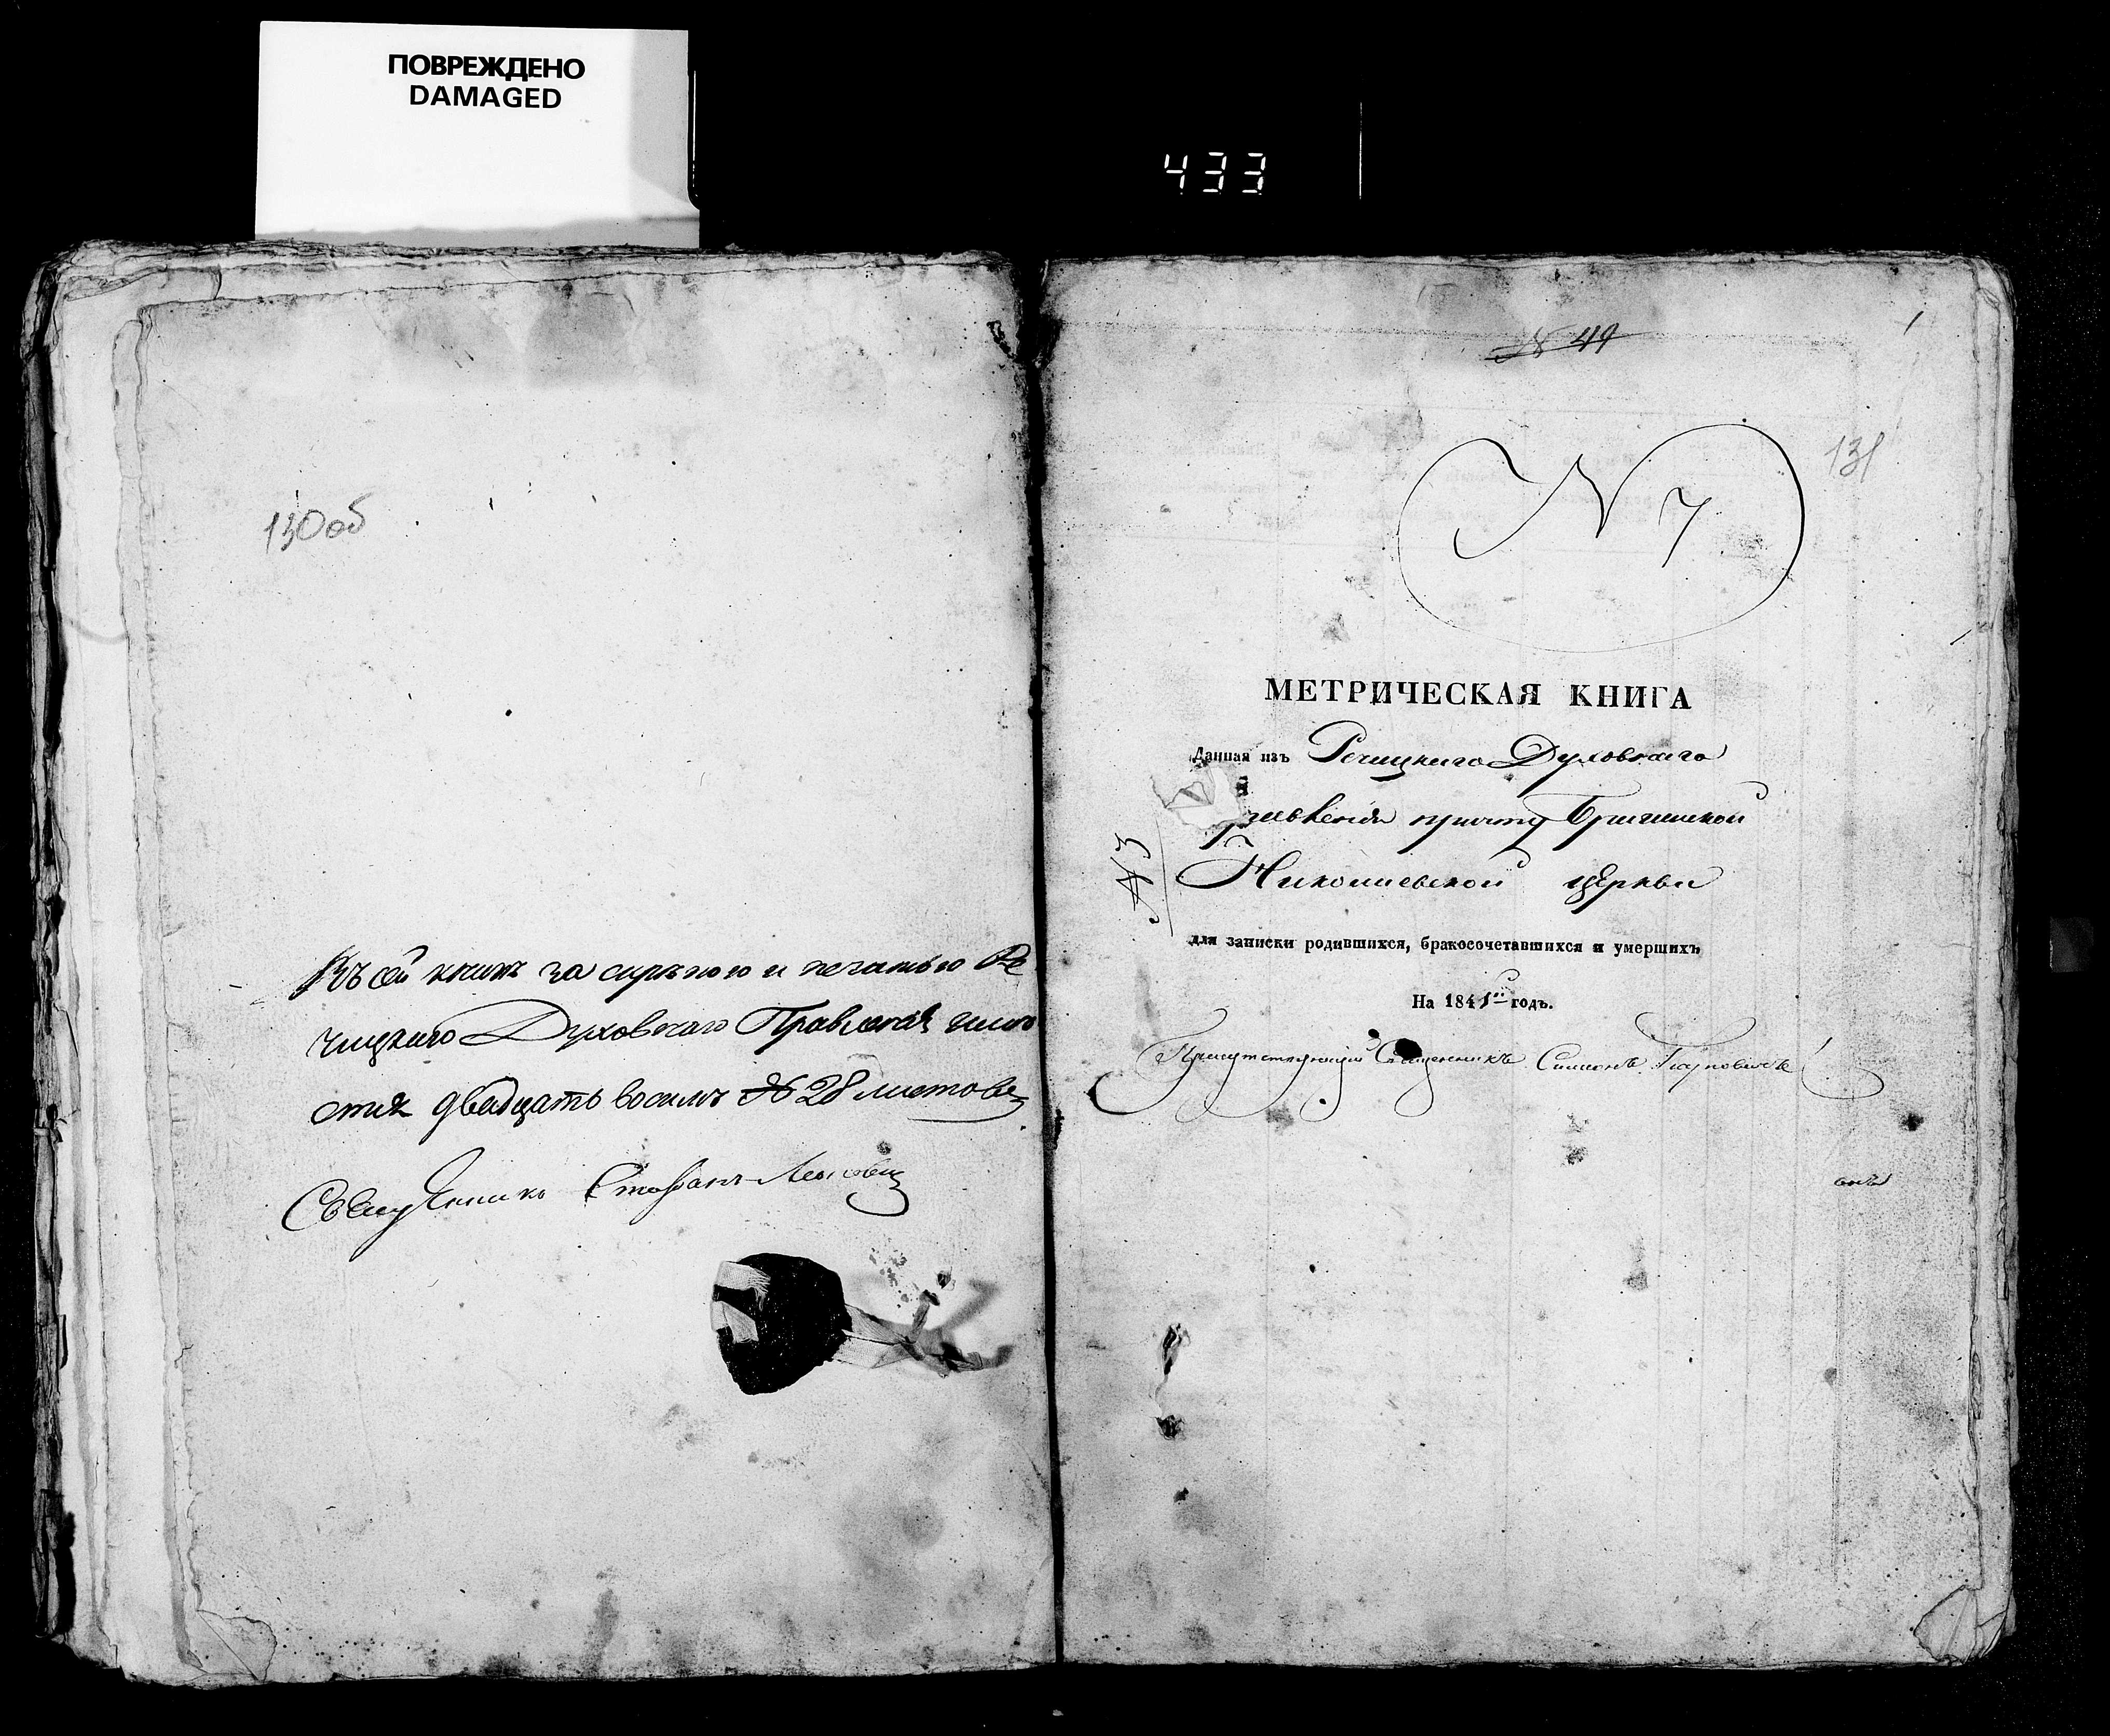 ПОВРЕЖДЕНО
DAMAGED
433
130об
Въ сей книгѣ за скрѣпою и печатью Ре
чицкаго Духовнаго Правленія
двадцать восемь № 28 листовъ
Священникъ Стефанъ
№ 49
1
131
N 7
МЕТРИЧЕСКАЯ КНИГА
Данная изъ Речицкаго Духовнаго
правленія причту Бригинской
Николаевской церкви
№3
для записки родившихся, бракосочетавшихся и умершихъ
На 1841й годъ.
Присутствующій Священникъ Симонъ